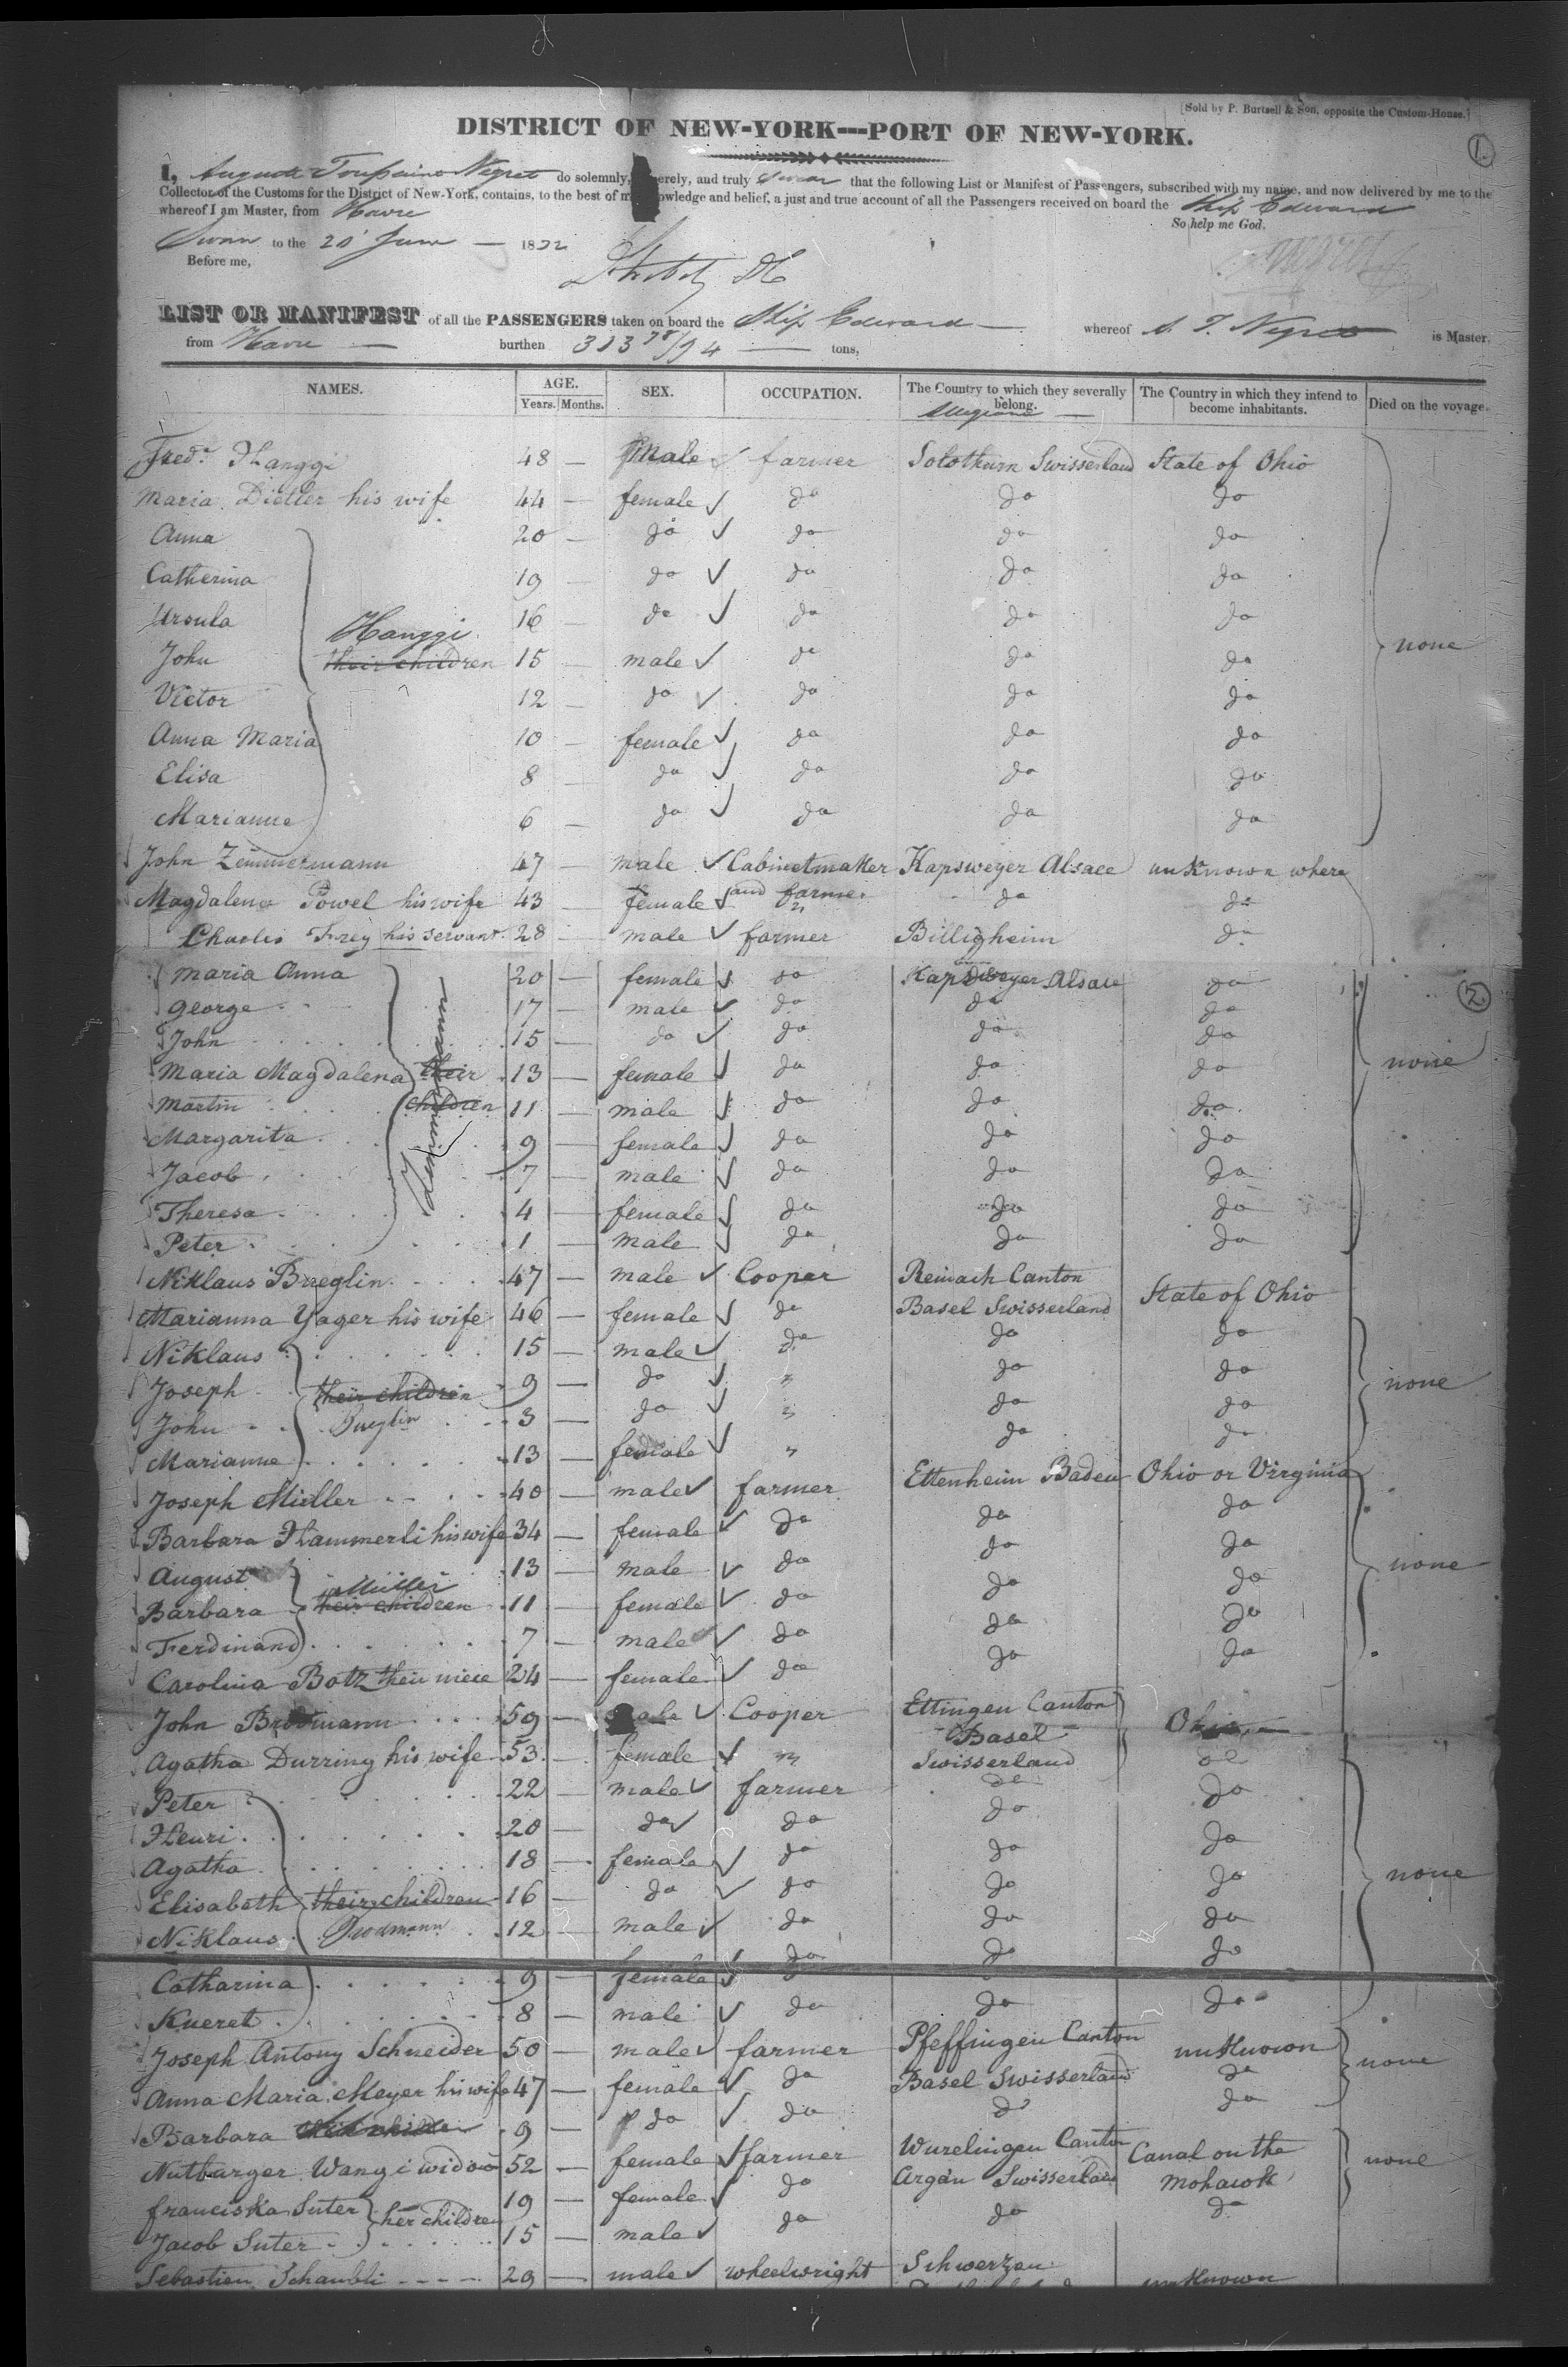 [Sold by P. Burtsell & Son, opposite the Custom-House.]
1.
DISTRICT OF NEW-YORK---PORT OF NEW-YORK.
I, Auguste Toussaint Negret do solemnly, erely, and truly swear that the following List or Manifest of Passengers, subscribed with my name, and now delivered by me to the
Collector of the Customs for the District of New-York, contains, to the best of m owledge and belief, a just and true account of all the Passengers received on board the Ship Edward
whereof I am Master, from Havre
So help me God.
Sworn to the 20 June — 1832
Before me,
LIST OR MANIFEST of all the PASSENGERS taken on board the Ship Edward — whereof A. T. Negret is Master.
from Havre — burthen 313 78/94 — tons,
NAMES. AGE. SEX. OCCUPATION. The Country to which they severally belong. The Country in which they intend to become inhabitants. Died on the voyage.
Years. Months.
Fredk. Hanggi 48 — Male farmer Solothurn Swisserland State of Ohio
Maria Dietler his wife 44 — female do do do
Anna 20 — do do do do
Catherina 19 do do do do
Ursula 16 do do do do
Hanggi
John their children 15 male do do do none
Victor 12 — do do do do
Anna Maria 10 female do do do
Elisa 8 do do do do
Marianne 6 — do do do do
John Zimmermann 47 male Cabinetmaker Kapsweyer Alsace unknown where
Magdalena Powel his wife 43 female and farmer do do
Charles Frey his servant 28 male farmer Billigheim do
Maria Anna 20 — female do Kapsweyer Alsace do
George 17 — male do do do 2.
John 15 — do do do do
Maria Magdalena their 13 — female do do do none
Martin children 11 — male do do do
Zimmermann
Margarita 9 — female do do do
Jacob 7 — male do do do
Theresa 4 — female do do do
Peter 1 — male do do do
Niklaus Bueglin 47 — male Cooper Reinach Canton State of Ohio
Marianna Yager his wife 46 — female do Basel Swisserland
Niklaus 15 — male do do do
Joseph their children 9 — do " do do none
John Bueglin 3 — do " do do
Marianne 13 — female " do do
Joseph Müller 40 — male farmer Ettenheim Baden Ohio or Virginia
Barbara Hammerli his wife 34 — female do do do
August 13 — male do do do none
Müller
Barbara their children 11 — female do do do
Ferdinand 7 — male do do do
Carolina Botz their niece 24 — female do do do
John Brodmann 59 — male Cooper Ettingen Canton Ohio
Basel
Agatha Durring his wife 53 female " Swisserland do
Peter 22 — male farmer do do
Henri 20 — do do do do
Agatha 18 — female do do do none
Elisabeth their children 16 — do do do do
Niklaus Brodmann 12 — male do do do
Catharina 9 — female do do do
Kueret 8 — male do do do
Joseph Antony Schneider 50 — male farmer Pfeffingen Canton unknown none
Anna Maria Meyer his wife 47 — female do Basel Swisserland do
Barbara 9 — do do do do
Nutburger Wangi widow 52 — female farmer Wurelingen Canton Canal on the none
Franciska Suter her children 19 — female do Argau Swisserland Mohawk
Jacob Suter 15 — male do do do
Sebastien Schaubli 29 — male wheelwright Schwerzen unknown